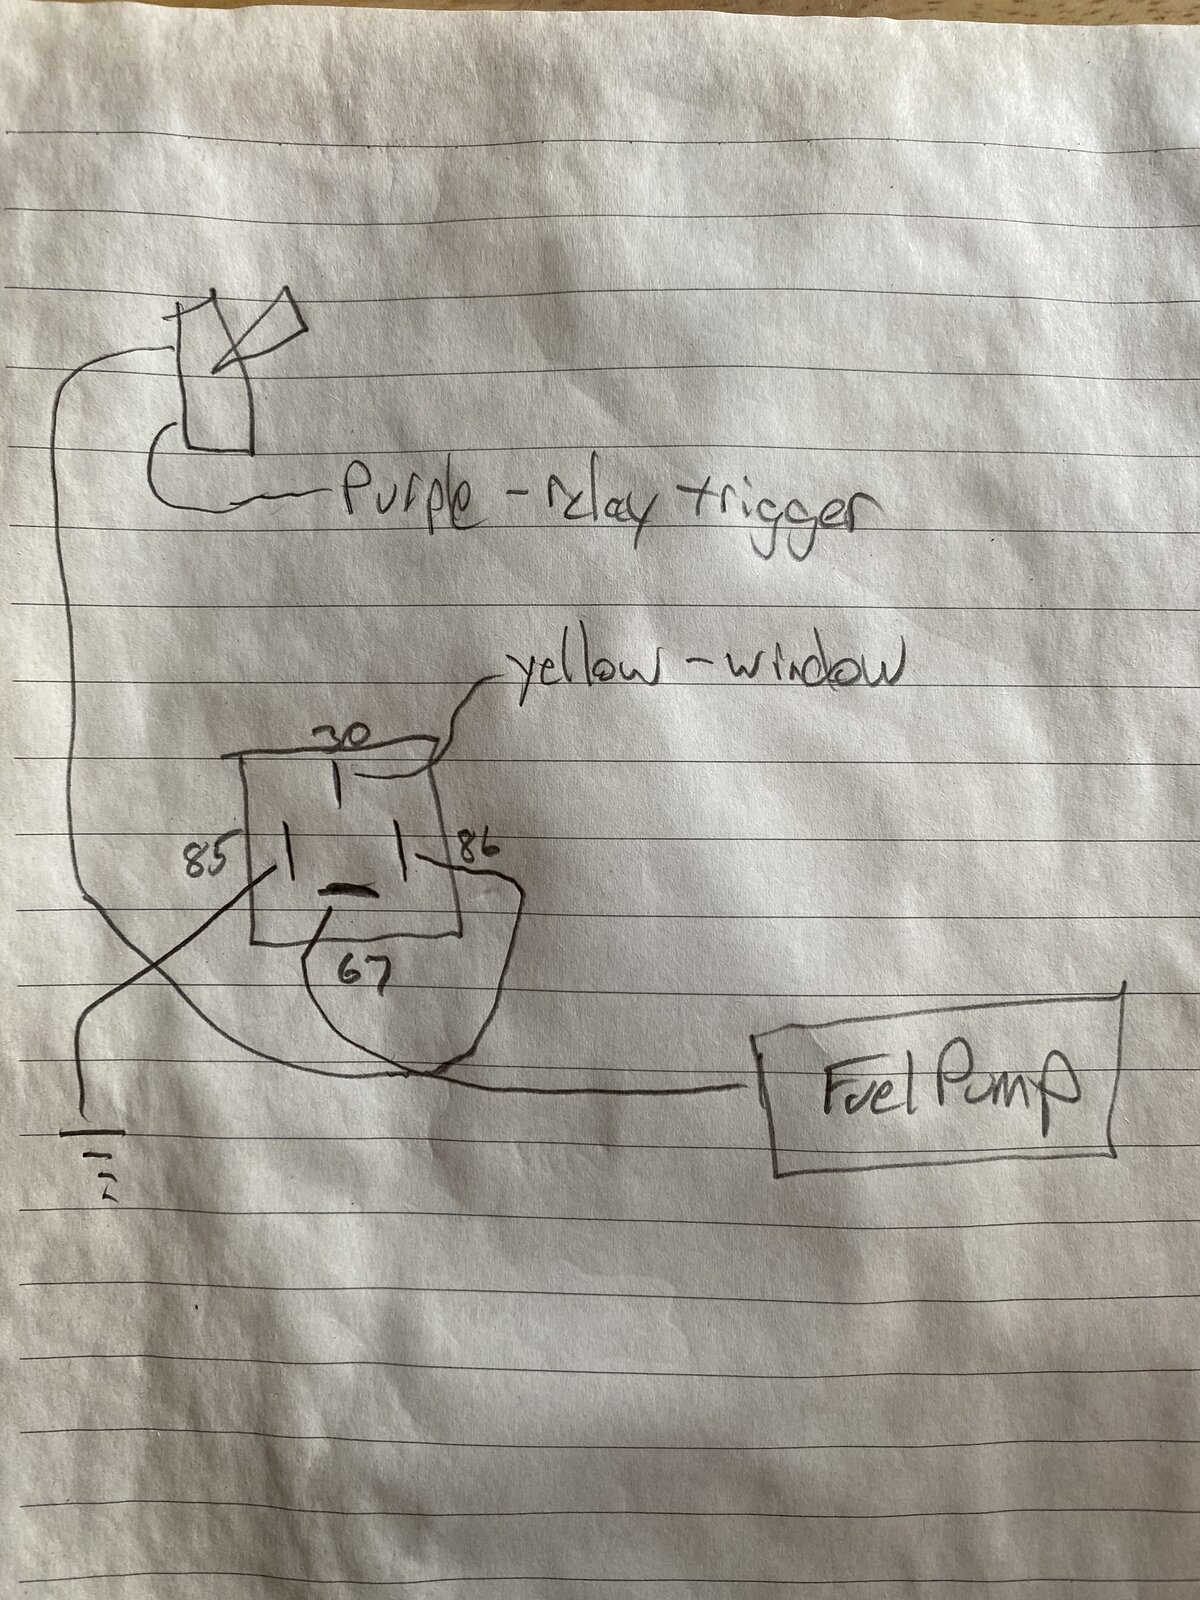 Purple - relay trigger
yellow - window
30
85
86
67
Fuel Pump